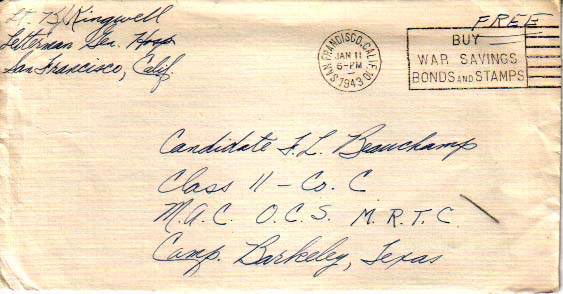 Lt. B. Kingwell
Letterman Gen. Hosp
San Francisco, Calif.
SAN FRANCISCO, CALIF. 10
JAN 11
6-PM
1943
FREE
BUY
WAR SAVINGS
BONDS AND STAMPS
Candidate F. L. Beauchamp
Class 11 - Co. C
M.A.C. O.C.S. M.R.T.C.
Camp. Barkeley, Texas